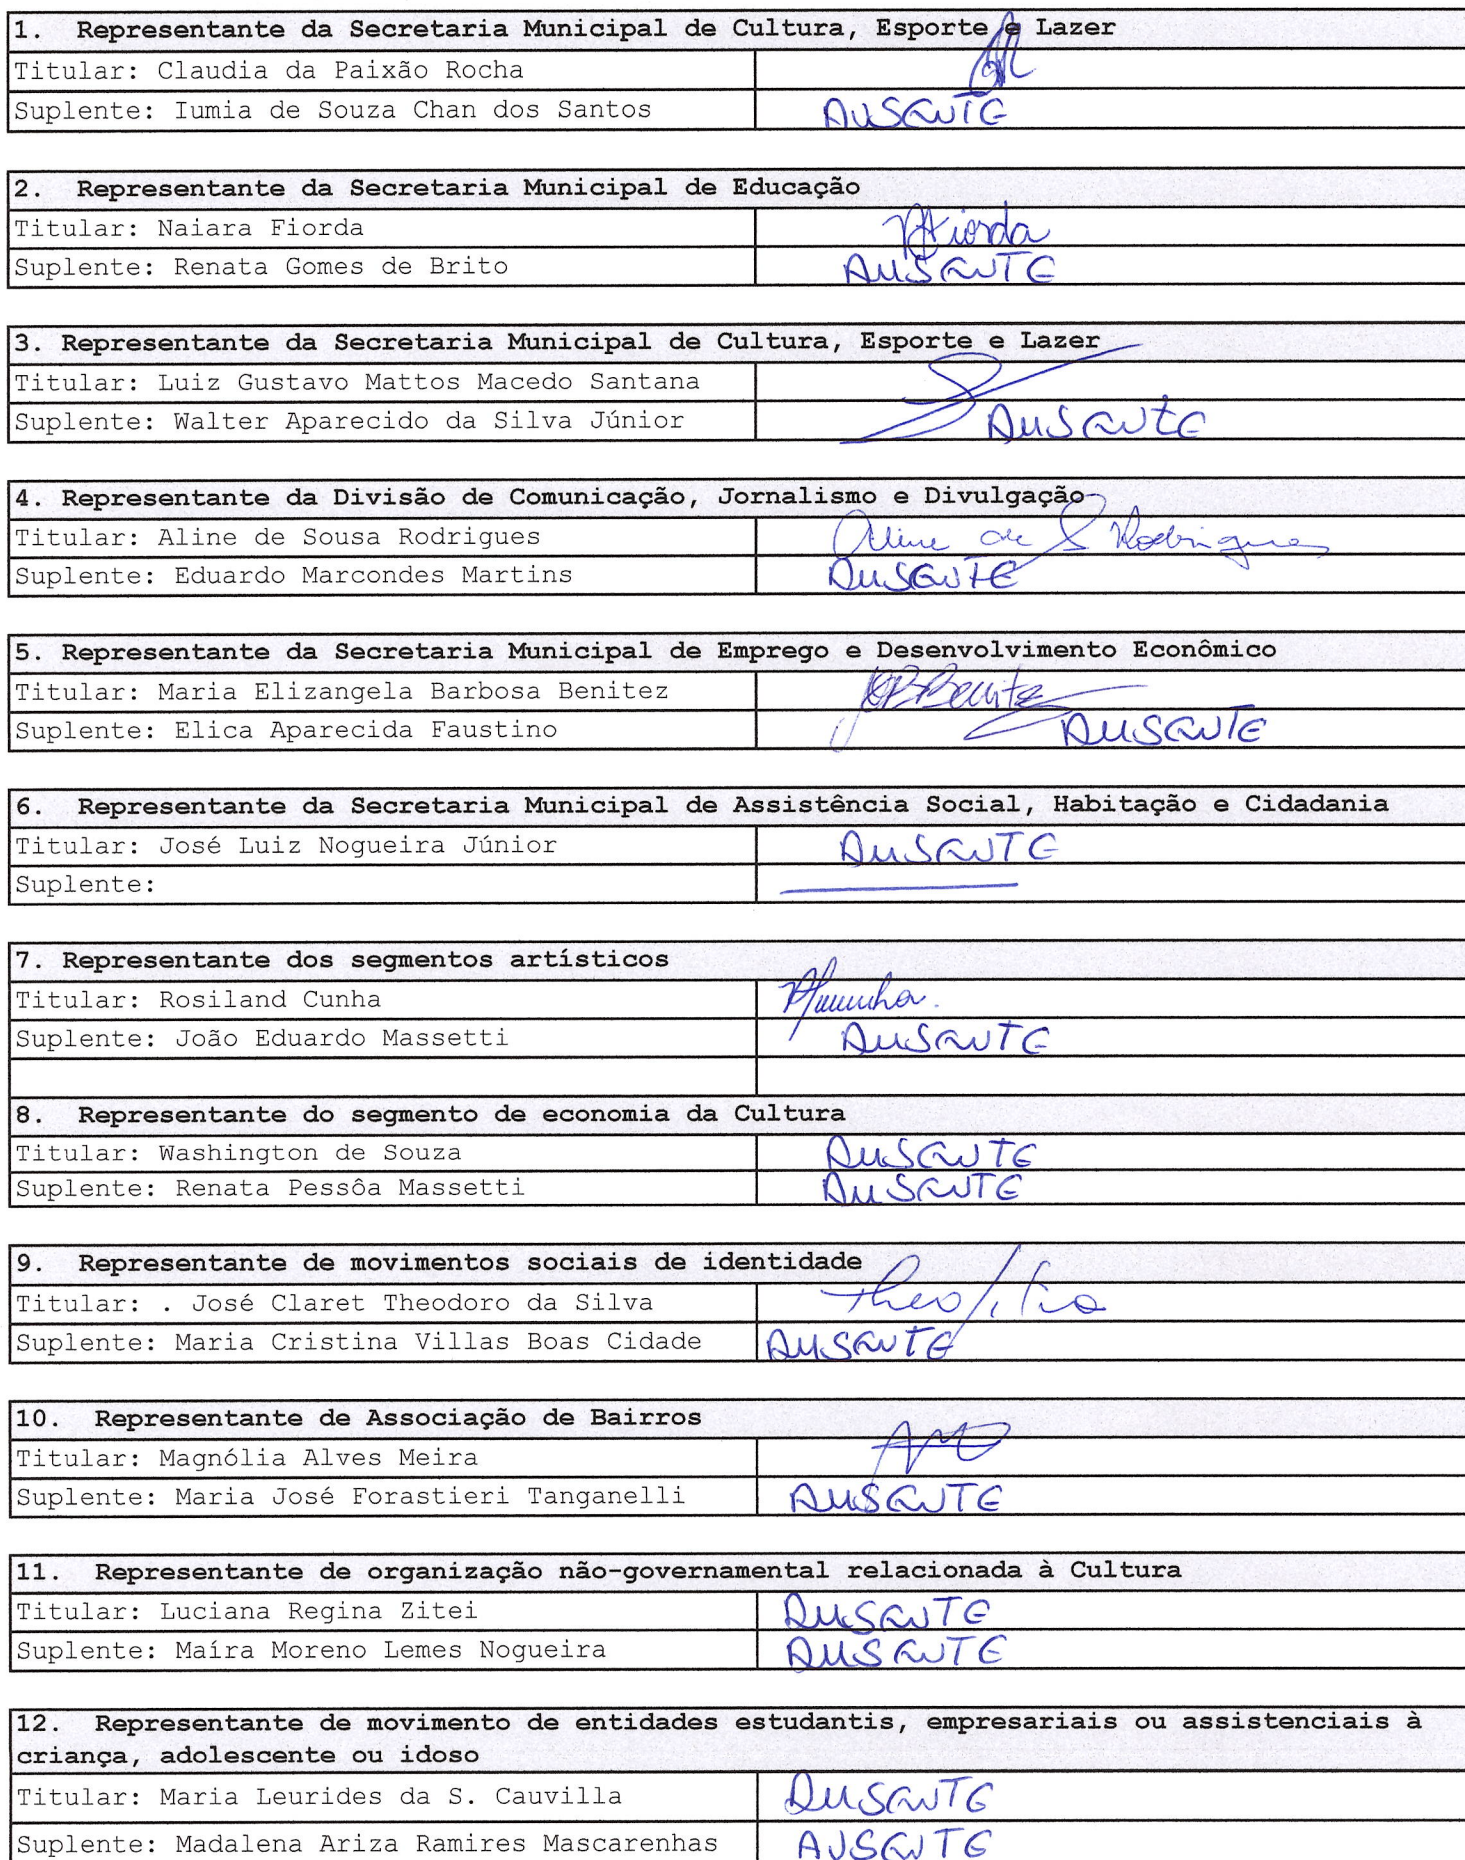 1. Representante da Secretaria Municipal de Cultura, Esporte e Lazer
Titular: Claudia da Paixão Rocha
Suplente: Iumia de Souza Chan dos Santos AUSENTE
2. Representante da Secretaria Municipal de Educação
Titular: Naiara Fiorda NFiorda
Suplente: Renata Gomes de Brito AUSENTE
3. Representante da Secretaria Municipal de Cultura, Esporte e Lazer
Titular: Luiz Gustavo Mattos Macedo Santana
Suplente: Walter Aparecido da Silva Júnior AUSENTE
4. Representante da Divisão de Comunicação, Jornalismo e Divulgação
Titular: Aline de Sousa Rodrigues Aline de S Rodrigues
Suplente: Eduardo Marcondes Martins AUSENTE
5. Representante da Secretaria Municipal de Emprego e Desenvolvimento Econômico
Titular: Maria Elizangela Barbosa Benitez Benitez
Suplente: Elica Aparecida Faustino AUSENTE
6. Representante da Secretaria Municipal de Assistência Social, Habitação e Cidadania
Titular: José Luiz Nogueira Júnior AUSENTE
Suplente:
7. Representante dos segmentos artísticos
Titular: Rosiland Cunha
Suplente: João Eduardo Massetti AUSENTE
8. Representante do segmento de economia da Cultura
Titular: Washington de Souza AUSENTE
Suplente: Renata Pessôa Massetti AUSENTE
9. Representante de movimentos sociais de identidade
Titular: . José Claret Theodoro da Silva
Suplente: Maria Cristina Villas Boas Cidade AUSENTE
10. Representante de Associação de Bairros
Titular: Magnólia Alves Meira
Suplente: Maria José Forastieri Tanganelli AUSENTE
11. Representante de organização não-governamental relacionada à Cultura
Titular: Luciana Regina Zitei AUSENTE
Suplente: Maíra Moreno Lemes Nogueira AUSENTE
12. Representante de movimento de entidades estudantis, empresariais ou assistenciais à
criança, adolescente ou idoso
Titular: Maria Leurides da S. Cauvilla AUSENTE
Suplente: Madalena Ariza Ramires Mascarenhas AUSENTE